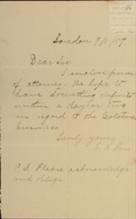 London 9/
Dear Sir
I enclose power
of attorney. We hope to
have something definite
within a day or two
in regard to the
business.
Truly yours
P.S. Please acknowledge
and oblige